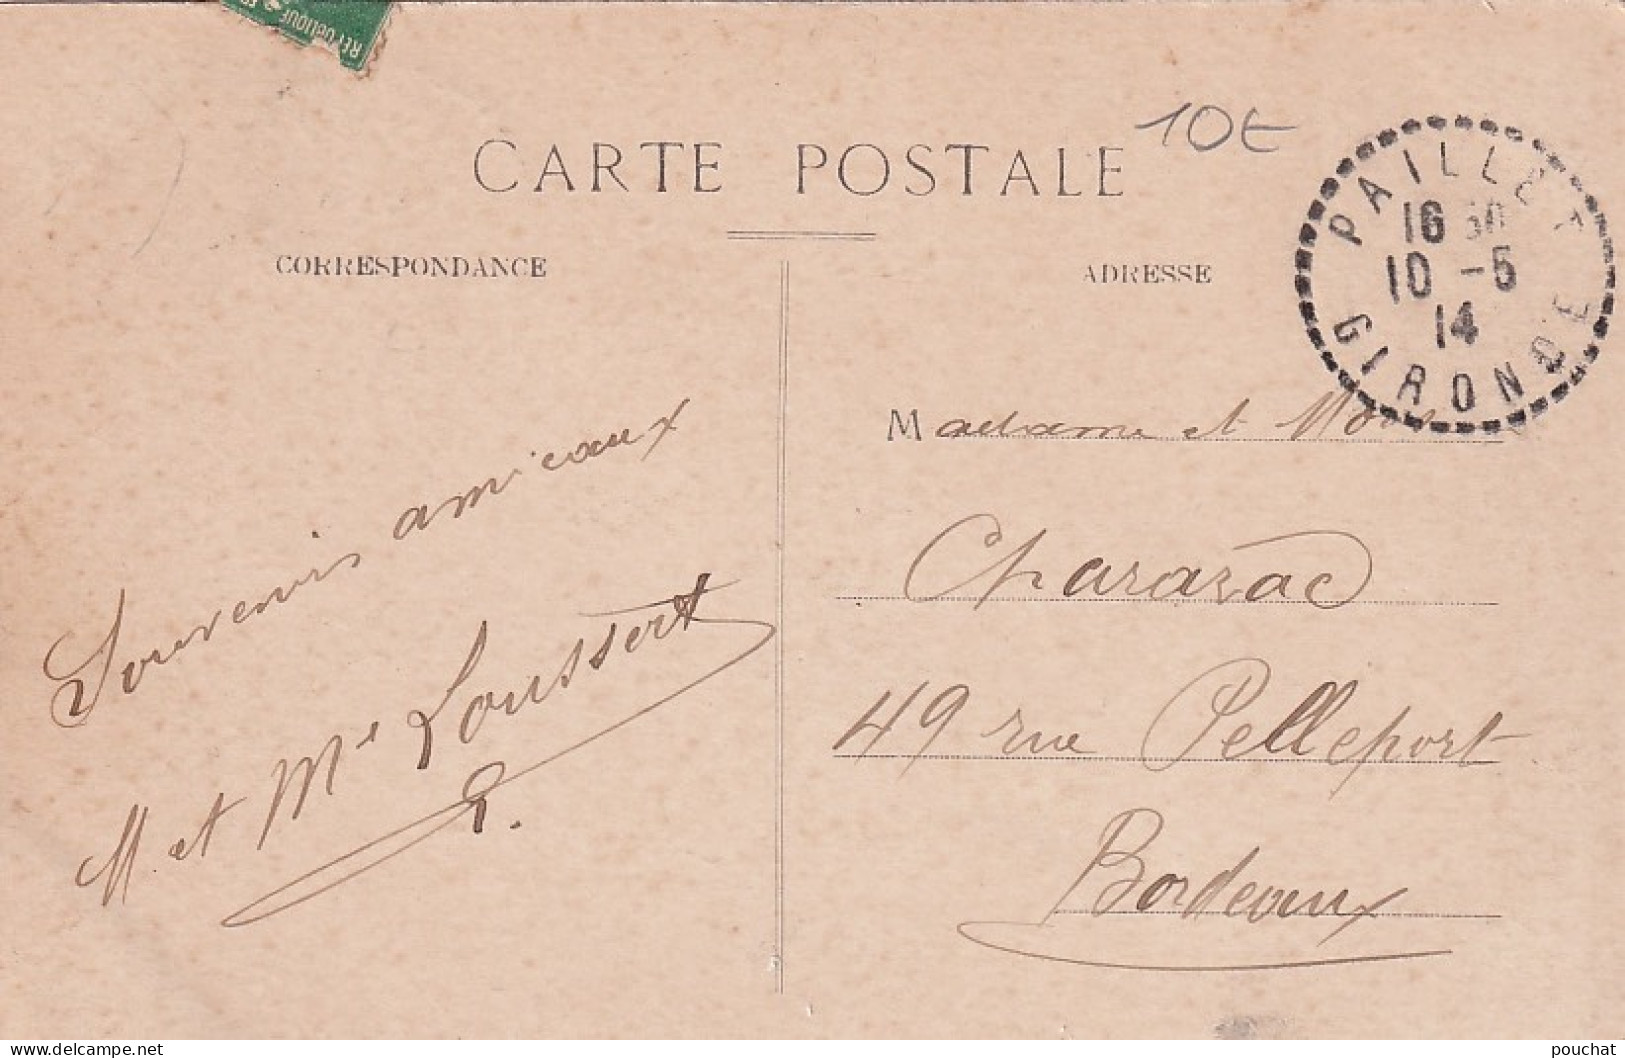 REPUBLIQUE
10€
CARTE POSTALE
CORRESPONDANCE
ADRESSE
PAILLET
16 30
10 - 5
14
GIRONDE
Souvenirs amicaux
M et Me Loussert
L.
Madame et
Chararac
49 rue Pelleport
Bordeaux
delcampe.net
pouchat